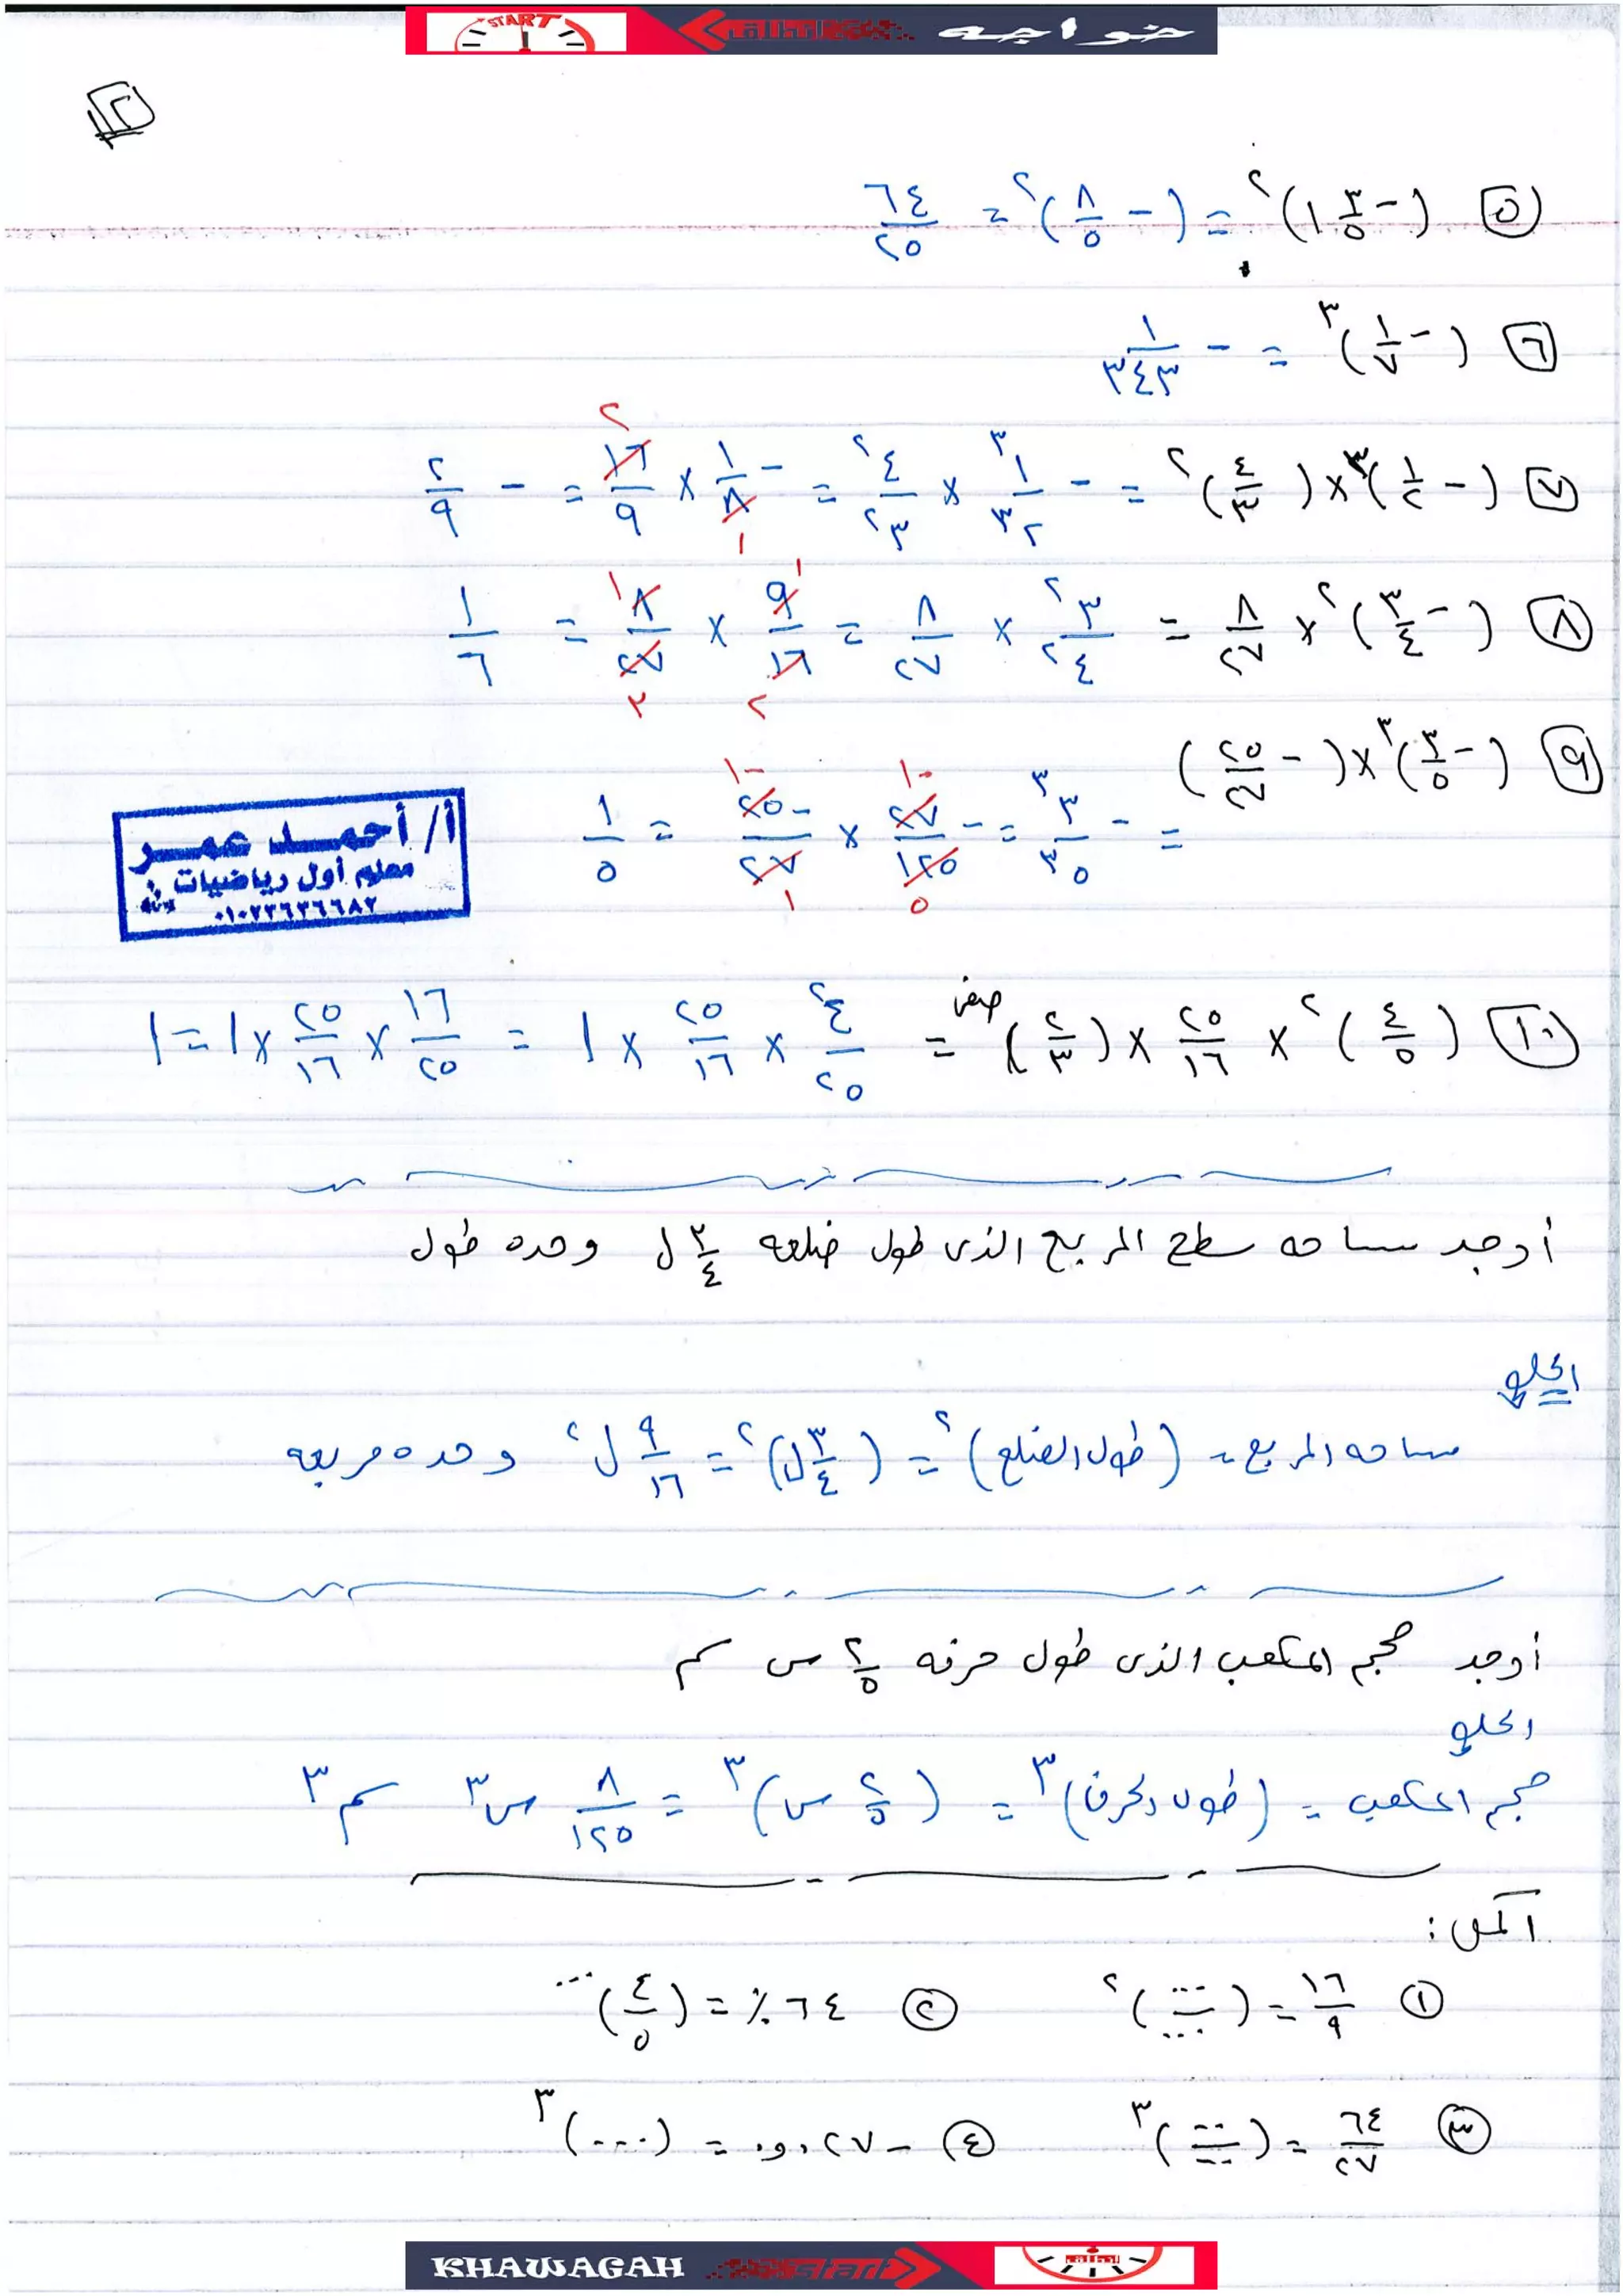 START خواجه انطلق
٢
٥ (-١ ٣/٥)^٢ = (-٨/٥)^٢ = ٦٤/٢٥
٦ (-١/٧)^٣ = -١/٣٤٣
٧ (-١/٢)^٣ × (٤/٣)^٢ = -١^٣/٢^٣ × ٤^٢/٣^٢ = -١/٨ × ١٦/٩ = -٢/٩
٨ (-٣/٤)^٢ × ٨/٢٧ = ٣^٢/٤^٢ × ٨/٢٧ = ٩/١٦ × ٨/٢٧ = ١/٦
٩ (-٣/٥)^٣ × (-٢٥/٢٧)
= -٣^٣/٥^٣ = -٢٧/١٢٥ × -٢٥/٢٧ = ١/٥
أ/ أحمد عمر
معلم أول رياضيات
٠١٠٢٢٦٣٦٦٨٢
١٠ (٤/٥)^٢ × ٢٥/١٦ × (٢/٣)^صفر = ٤^٢/٢٥ × ٢٥/١٦ × ١ = ١٦/٢٥ × ٢٥/١٦ × ١ = ١
أوجد مساحه سطح المربع الذى طول ضلعه ٣/٤ ل وحده طول
الحل
مساحه المربع = (طول الضلع)^٢ = (٣/٤ ل)^٢ = ٩/١٦ ل^٢ وحده مربعه
أوجد حجم المكعب الذى طول حرفه ٢/٥ س سم
الحل
حجم المكعب = (طول الحرف)^٣ = (٢/٥ س)^٣ = ٨/١٢٥ س^٣ سم^٣
أكمل :
١ ١٦/٩ = (.../...)^٢ ٢ ٦٤ ٪ = (٤/٥)^...
٣ ٦٤/٢٧ = (.../...)^٣ ٤ -٠٫٠٢٧ = (...)^٣
KHAWAGAH START انطلق